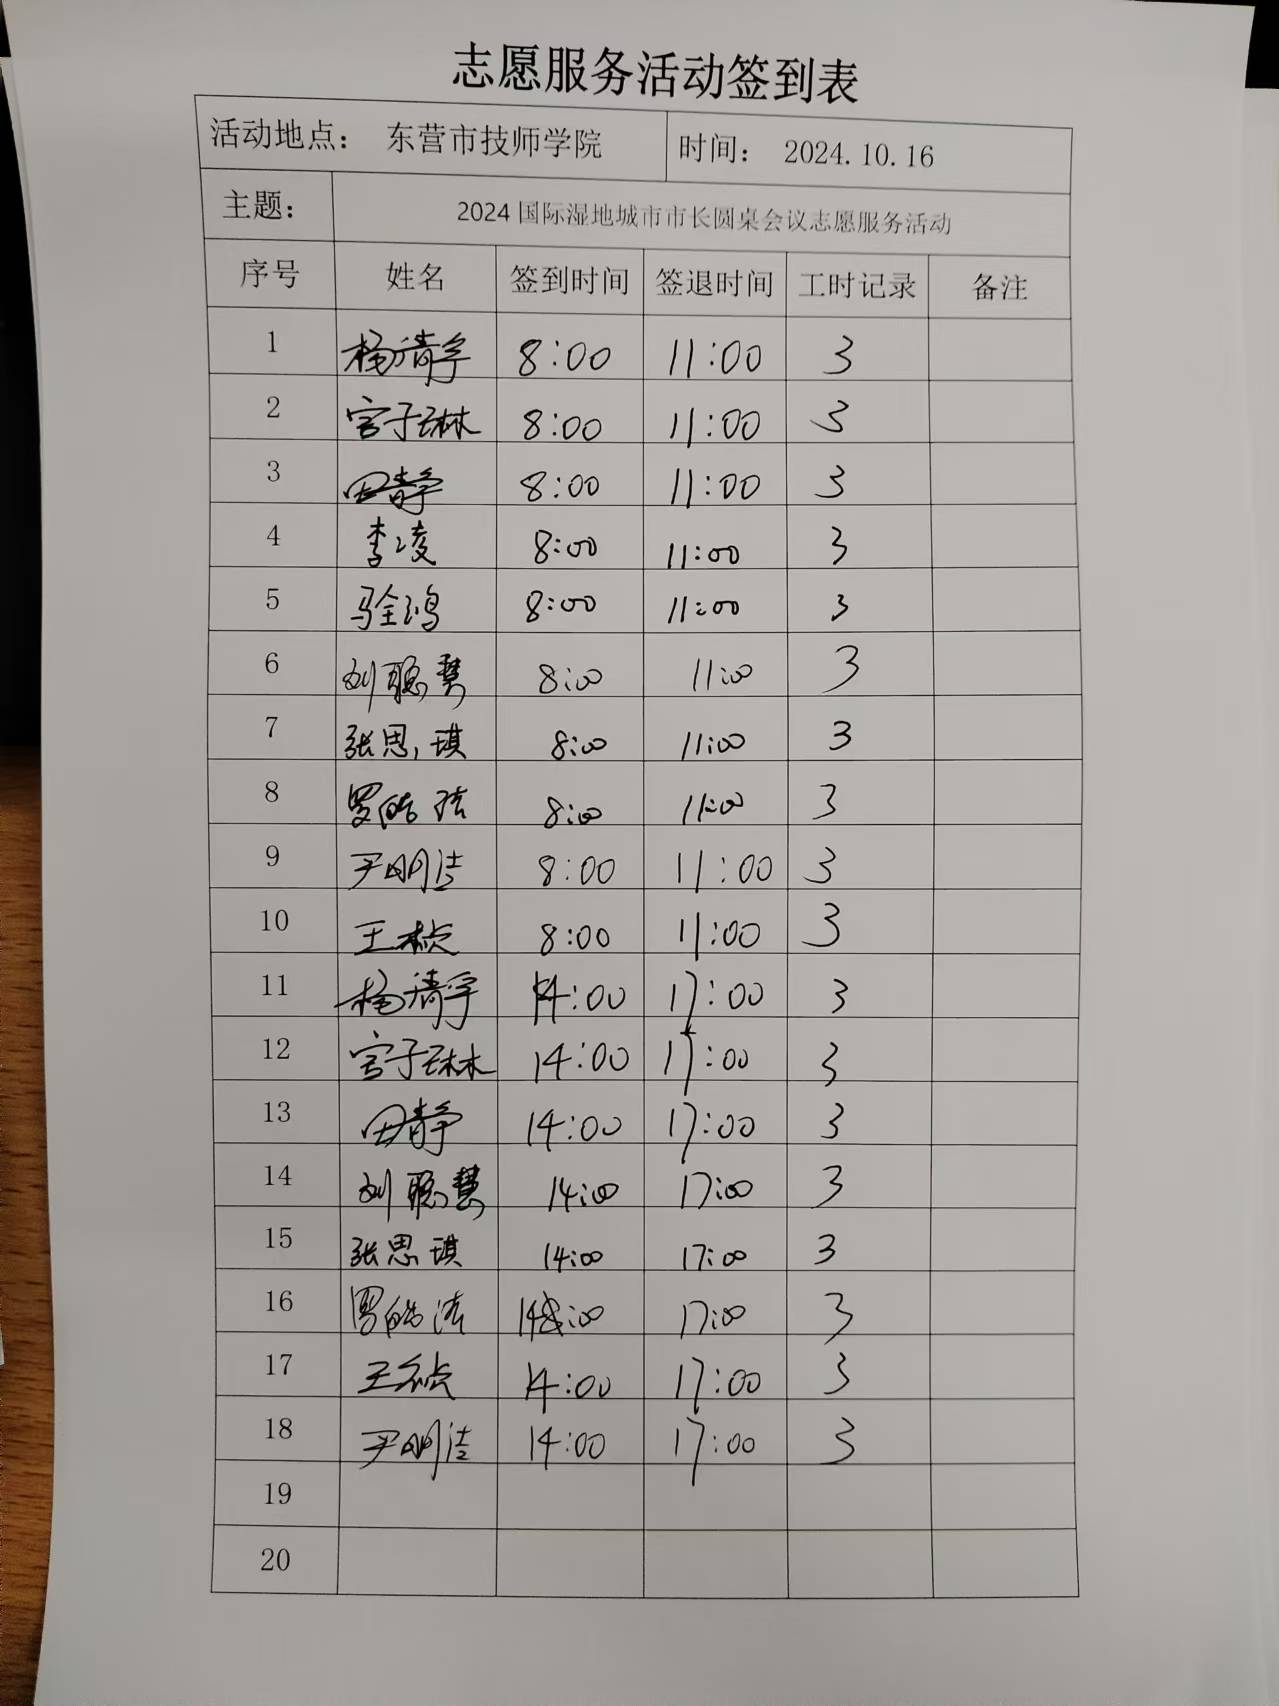 志愿服务活动签到表
活动地点： 东营市技师学院 时间： 2024.10.16
主题： 2024国际湿地城市市长圆桌会议志愿服务活动
序号 姓名 签到时间 签退时间 工时记录 备注
1 杨清宇 8:00 11:00 3
2 宫子琳 8:00 11:00 3
3 田静 8:00 11:00 3
4 李凌 8:00 11:00 3
5 骆鸿 8:00 11:00 3
6 刘聪慧 8:00 11:00 3
7 张思琪 8:00 11:00 3
8 罗皓 8:00 11:00 3
9 尹明洁 8:00 11:00 3
10 王桢 8:00 11:00 3
11 杨清宇 14:00 17:00 3
12 宫子琳 14:00 17:00 3
13 田静 14:00 17:00 3
14 刘聪慧 14:00 17:00 3
15 张思琪 14:00 17:00 3
16 罗皓 14:00 17:00 3
17 王 14:00 17:00 3
18 尹明洁 14:00 17:00 3
19
20